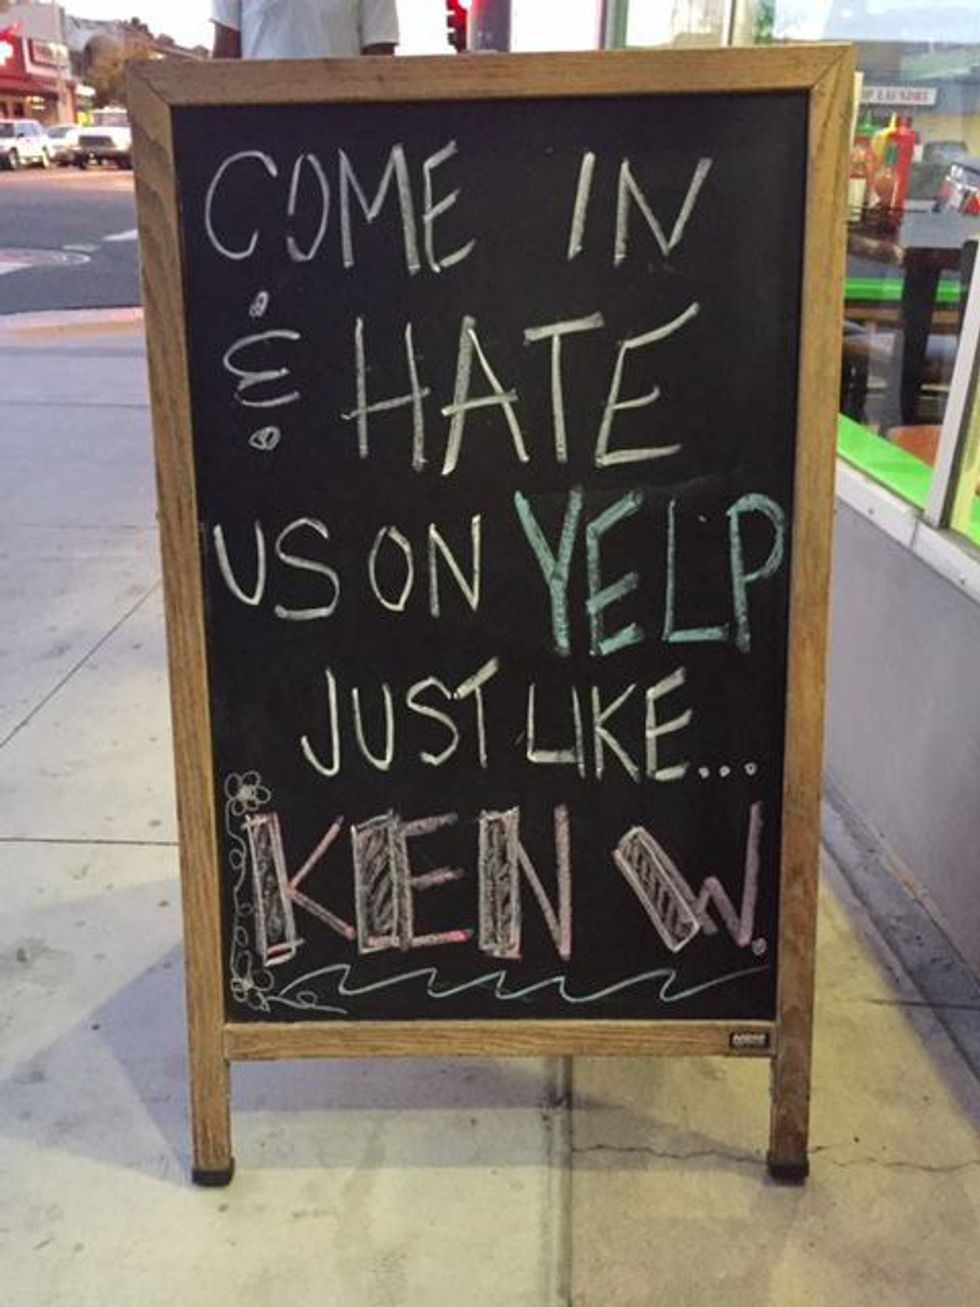 COME IN
& HATE
US ON YELP
JUST LIKE...
KEN W.